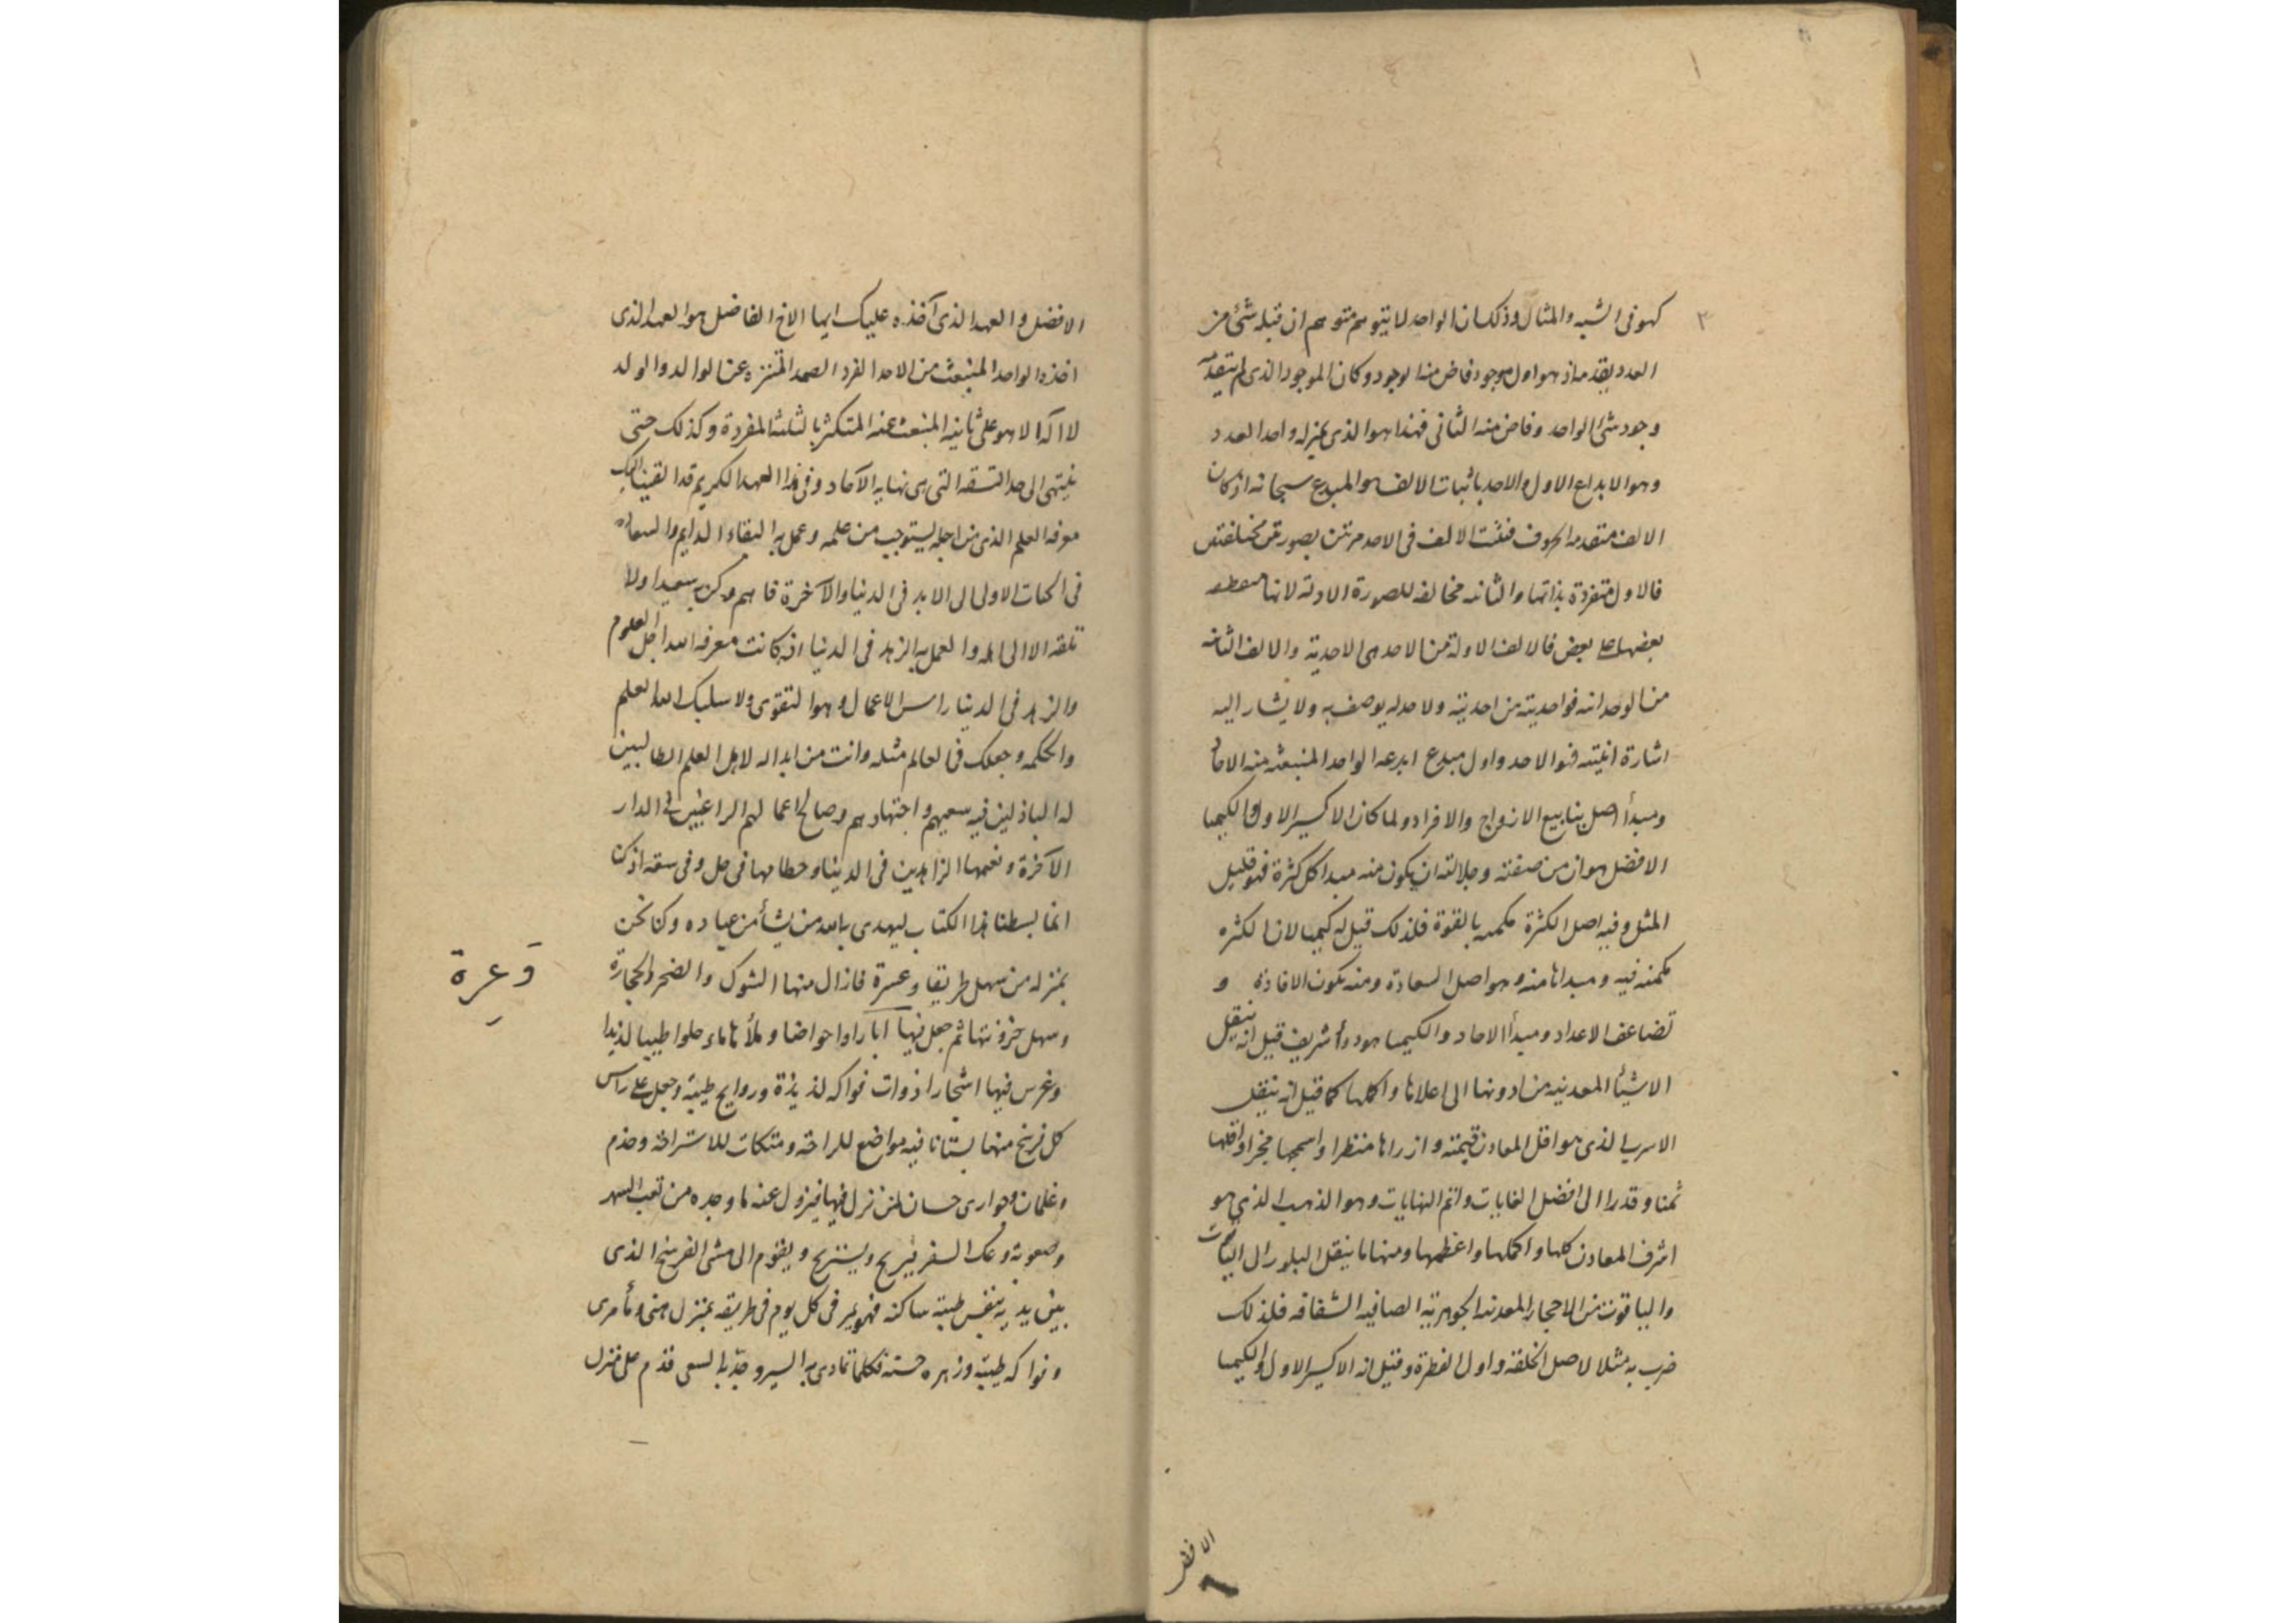 ٣
كهو فى الشبه والمثال وذلك ان الواحد لا يتوهم متوهم ان قبله شئ من
العدد يقدمه اذ هو اول موجود فاض منه الوجود وكان الموجود الذى لم يتقدمه
وجود شئ الواحد وفاض منه الثانى فهذا هو الذى بمنزله واحد العدد
وهو الابداع الاول والاحد باثبات الالف هو المبدع سبحانه اذ كان
الالف متقدمه الحروف فثبت الالف فى الاحد مرتين بصورتين مختلفتين
فالاول متفردة بذاتها والثانيه مخالفه للصورة الاولة لانها
بعضها على بعض فالالف الاولة من الاحد هى الاحدية والالف الثانيه
من الوحدانيه فواحديته من احديته ولا حد له يوصف به ولا يشار اليه
اشارة انيته فهو الاحد واول مبدع ابدعه الواحد المنبعثه منه الاحاد
ومبدأ اصل ينابيع الازواج والافراد ولما كان الاكسير الاول والكيميا
الافضل هو ان من صفته وجلالته ان يكون منه مبدا كل كثرة فهو قليل
المثل وفيه اصل الكثرة مكمنه بالقوة فلذلك قيل له كيميا لان الكثره
مكمنه فيه ومبداها منه وهو اصل السعادة ومنه تكون الافادة و
تضاعف الاعداد ومبدأ الاحاد والكيميا هو دواء شريف قيل انه ينقل
الاشيأ المعدنيه من ادونها الى اعلاها واكملها كما قيل انه ينقل
الاسرب الذى هو اقل المعادن قيمته وازراها منظرا واسمجها مخبرا واقلها
ثمنا وقدرا الى افضل الغايات واتم النهايات وهو الذهب الذى هو
اشرف المعادن كلها واكملها واعظمها ومنها ما ينقل البلور الى الياقوت
والياقوت من الاحجار المعدنيه الجوهرية الصافيه الشفافه فلذلك
ضرب به مثلا لاصل الخلقه واول الفطرة وقيل انه الاكسير الاول والكيميا
الافضل
الافضل والعهد الذى آخذه عليك ايها الاخ الفاضل هو العهد الذى
اخذه الواحد المنبعث من الاحد الفرد الصمد المتنزه عن الوالد والولد
لا اله الا هو على ثانيه المنبعث عنه المتكثر بالثلثه المفردة وكذلك حتى
ينتهى الى حد التسعه التى هى نهايه الآحاد وفى هذا العهد الكريم قد القينا اليك
معرفه العلم الذى من اجله يستوجب من علمه وعمل به البقاء الدايم والسعاده
فى الحيات الاولى الى الابد فى الدنيا والآخرة فافهم وكن به سعيدا ولا
تلقه الا الى اهله والعمل به الزهد فى الدنيا اذ كانت معرفه الله اجل العلوم
والزهد فى الدنيا راس الاعمال وهو التقوى ولا سلبك الله العلم
والحكمه وجعلك فى العالم مثله وانت من ابداله لاهل العلم الطالبين
له الباذلين فيه سعيهم واجتهادهم وصالح اعمالهم الراغبين فى الدار
الآخرة ونعيمها الزاهدين فى الدنيا وحطامها فى حل وفى سعه اذ كنا
انما بسطنا هذا الكتاب ليهدى به الله من يشأ من عباده وكنا نحن
بمنزله من سهل طريقا وعسرة فازال منها الشوك والصخر والحجارة
وسهل حزونتها ثم جعل فيها آبارا واحواضا وملأها ماء حلوا طيبا لذيدا
وغرس فيها اشجارا ذوات فواكه لذيذة وروايح طيبة وجعل على راس
كل فرسخ منها بستانا فيه مواضع للراحة ومتكات للاستراحة وخدم
وغلمان وجوارى حسان لمن نزل فيها فيزول عنه ما وجده من تعب السهر
وصعوبة وعك السفر فيريح ويستريح ويقوم الى مشى الفرسخ الذى
بين يديه بنفس طيبة ساكنه فهو يمر فى كل يوم فى طريقه بمنزل هنى ومأ مرى
وفواكه طيبة وزهره حسنه فكلما تمادى به السير وجد به السعى قدم على منزل
وَعِرة